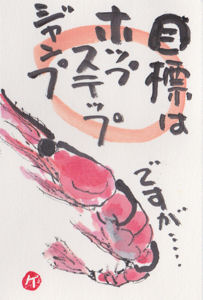 目標は
ホップ
ステップ
ジャンプ
ですが……